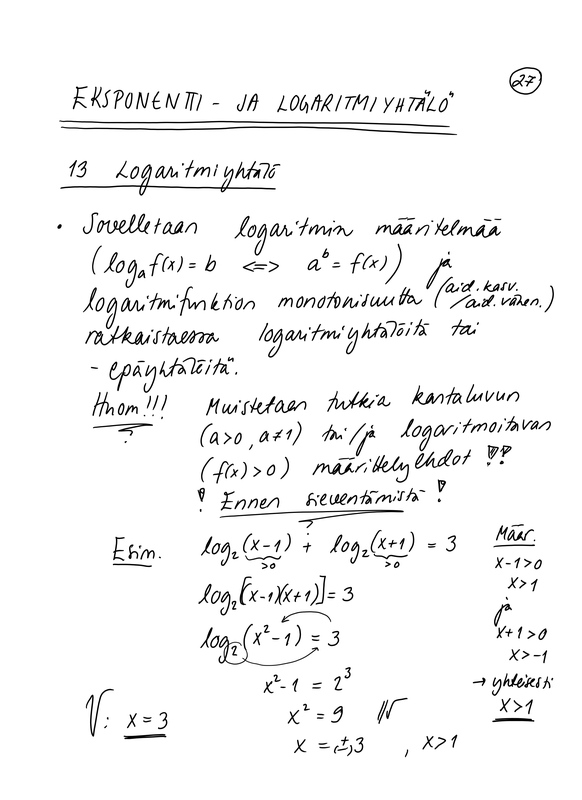 27
EKSPONENTTI- JA LOGARITMIYHTÄLÖ
13 Logaritmiyhtälö
• Sovelletaan logaritmin määritelmää
(logₐ f(x) = b <=> aᵇ = f(x)) ja
logaritmifunktion monotonisuutta (aid. kasv. / aid. vähen.)
ratkaistaessa logaritmiyhtälöitä tai
- epäyhtälöitä.
Huom!!! Muistetaan tutkia kantaluvun
(a>0, a≠1) tai/ja logaritmoitavan
(f(x)>0) määrittelyehdot !!
! Ennen sieventämistä !
Esim. log₂(x-1) + log₂(x+1) = 3
>0 >0
log₂[(x-1)(x+1)] = 3
log₂(x²-1) = 3
x²-1 = 2³
x² = 9 ||√
x = (±)3 , x>1
V: x = 3
Määr.
x-1>0
x>1
ja
x+1>0
x>-1
→ yhteisesti
x>1